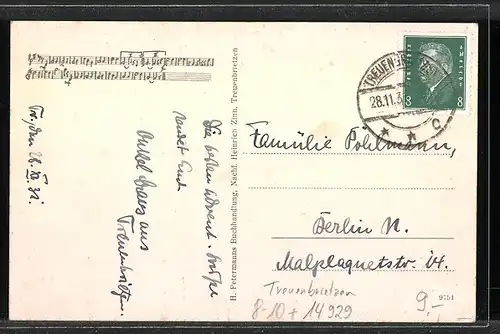 Tr., den 28. XI. 31.
Die besten Advent-Grüße
sendet Euch
Onkel Franz aus
Treuenbrietzen.
H. Petermanns Buchhandlung, Nachf. Heinrich Zinn, Treuenbrietzen
TREUENBRIETZEN
28.11.3
c
8 8
Familie Pohlmann,
Berlin N.
Malplaquetstr. 14.
Treuenbrietzen
8-10 + 14929
9751
9,-